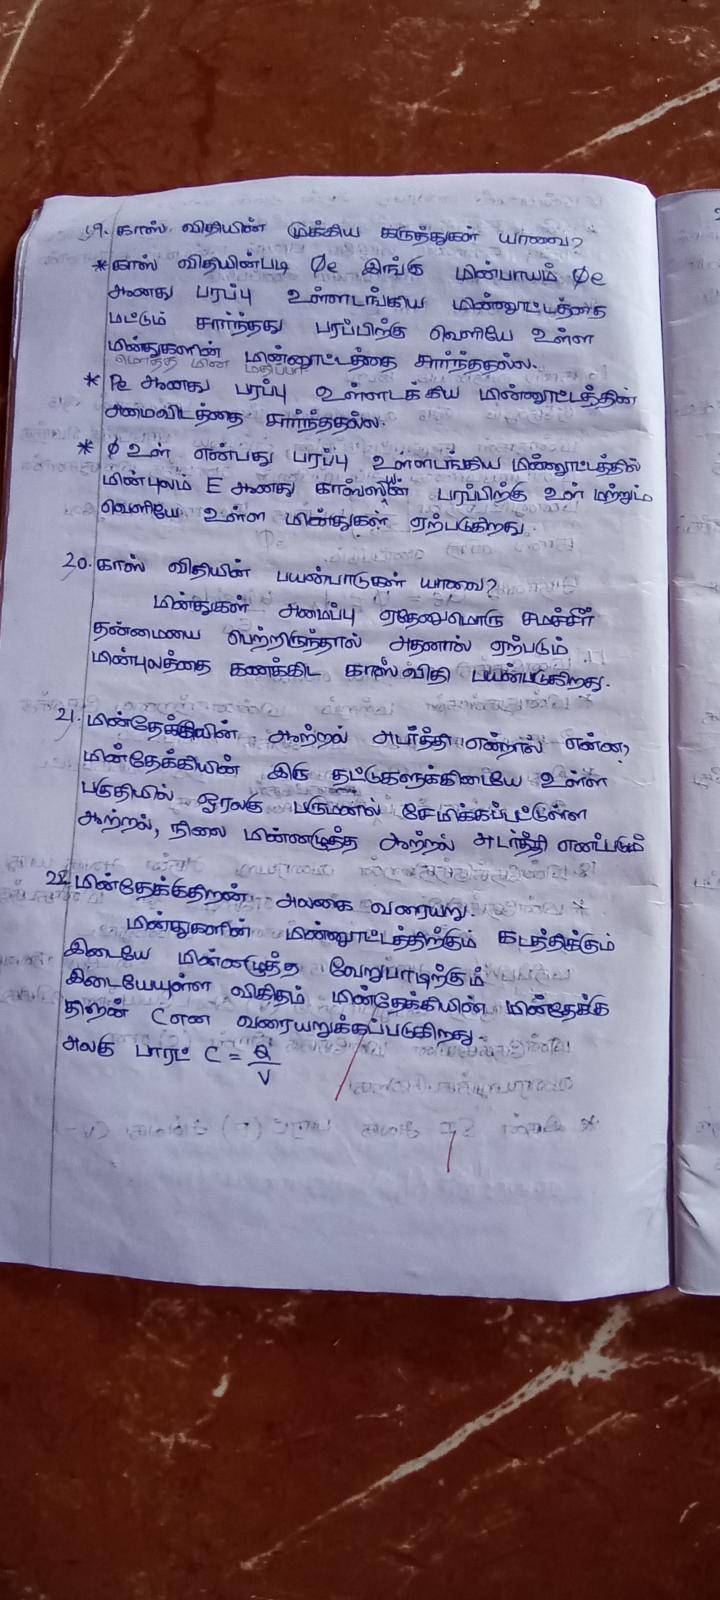 19. காஸ் விதியின் முக்கிய கருத்துகள் யாவை?
* காஸ் விதியின்படி Øe இங்கு மின்பாயம் Øe
ஆனது பரப்பு உள்ளடங்கிய மின்னூட்டத்தை
மட்டும் சார்ந்தது பரப்பிற்கு வெளியே உள்ள
மின்துகளின் மின்னூட்டத்தை சார்ந்ததல்ல.
மொத்த மின் மதிப்பா
* Øe ஆனது பரப்பு உள்ளடக்கிய மின்னூட்டத்தின்
அமைவிடத்தை சார்ந்ததல்ல.
* Ø உள் என்பது பரப்பு உள்ளடங்கிய மின்னூட்டத்தில்
மின்புலம் E ஆனது காஸ்ஸின் பரப்பிற்கு உள் மற்றும்
வெளியே உள்ள மின்துகள் ஏற்படுகிறது.
20. காஸ் விதியின் பயன்பாடுகள் யாவை?
மின்துகள் அமைப்பு ஏதேனுமொரு சமச்சீர்
தன்மையை பெற்றிருந்தால் அதனால் ஏற்படும்
மின்புலத்தை கணக்கிட காஸ் விதி பயன்படுகிறது.
21. மின்தேக்கியின் ஆற்றல் அடர்த்தி என்றால் என்ன?
மின்தேக்கியின் இரு தட்டுகளுக்கிடையே உள்ள
பகுதியில் ஓரலகு பருமனில் சேமிக்கப்பட்டுள்ள
ஆற்றல், நிலை மின்னழுத்த ஆற்றல் அடர்த்தி எனப்படும்
22. மின்தேக்குதிறன் அலகை வரையறு.
மின்துகளின் மின்னூட்டத்திற்கும் கடத்திக்கும்
இடையே மின்னழுத்த வேறுபாடிற்கும்
இடையேயுள்ள விகிதம் மின்தேக்கியின் மின்தேக்கு
திறன் C என வரையறுக்கப்படுகிறது.
அலகு பாரட் C = Q/V